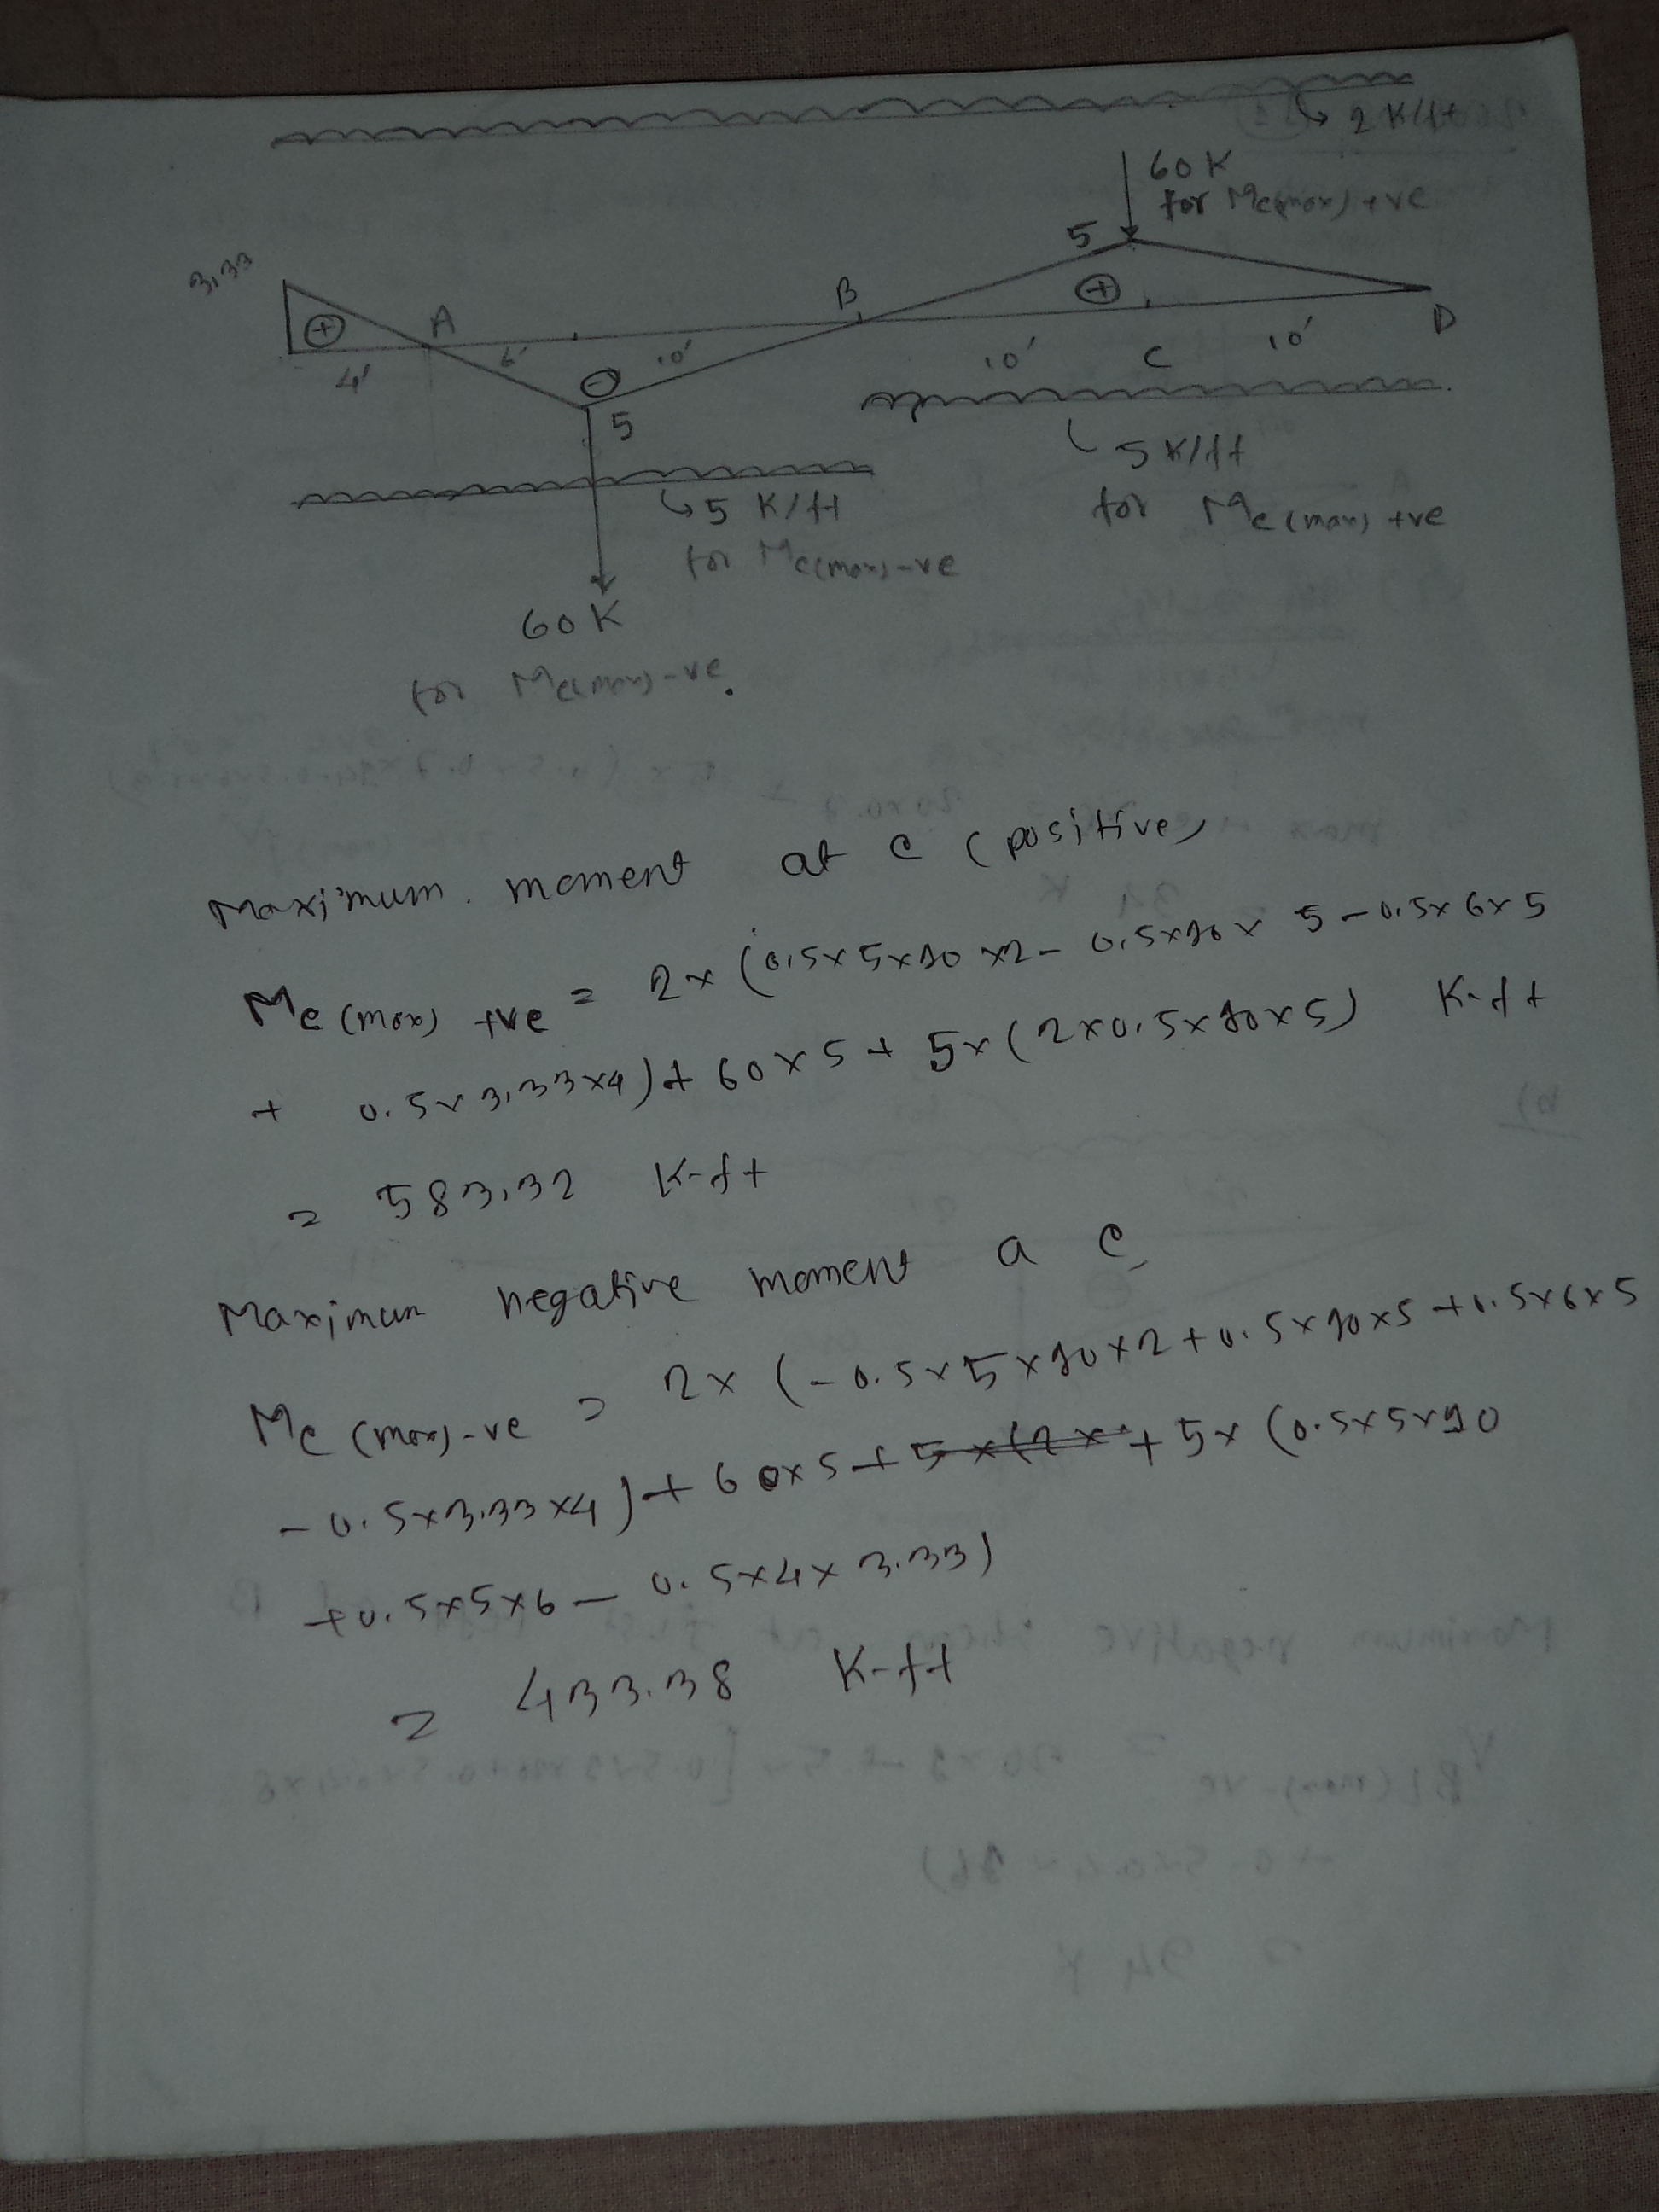 2 K/ft
60 K
for Mc(max) +ve
3.33
5
+
A
B
+
D
4'
6'
10'
-
10'
C
10'
5
5 K/ft
for Mc(max) +ve
5 K/ft
for Mc(max) -ve
60 K
for Mc(max) -ve.
Maximum. moment at C (positive)
Mc (max) +ve = 2 x (0.5x5x10 x2 - 0.5x10x 5 - 0.5x6x5
+ 0.5x3.33x4) + 60x5 + 5x(2x0.5x10x5) K-ft
= 583.32 K-ft
Maximum negative moment a C
Mc (max) -ve = 2x (-0.5x5x10x2 + 0.5x10x5 + 0.5x6x5
- 0.5x3.33x4) + 60x5 + 5x(2x + 5x (0.5x5x10
+0.5x5x6 - 0.5x4x3.33)
= 433.38 K-ft